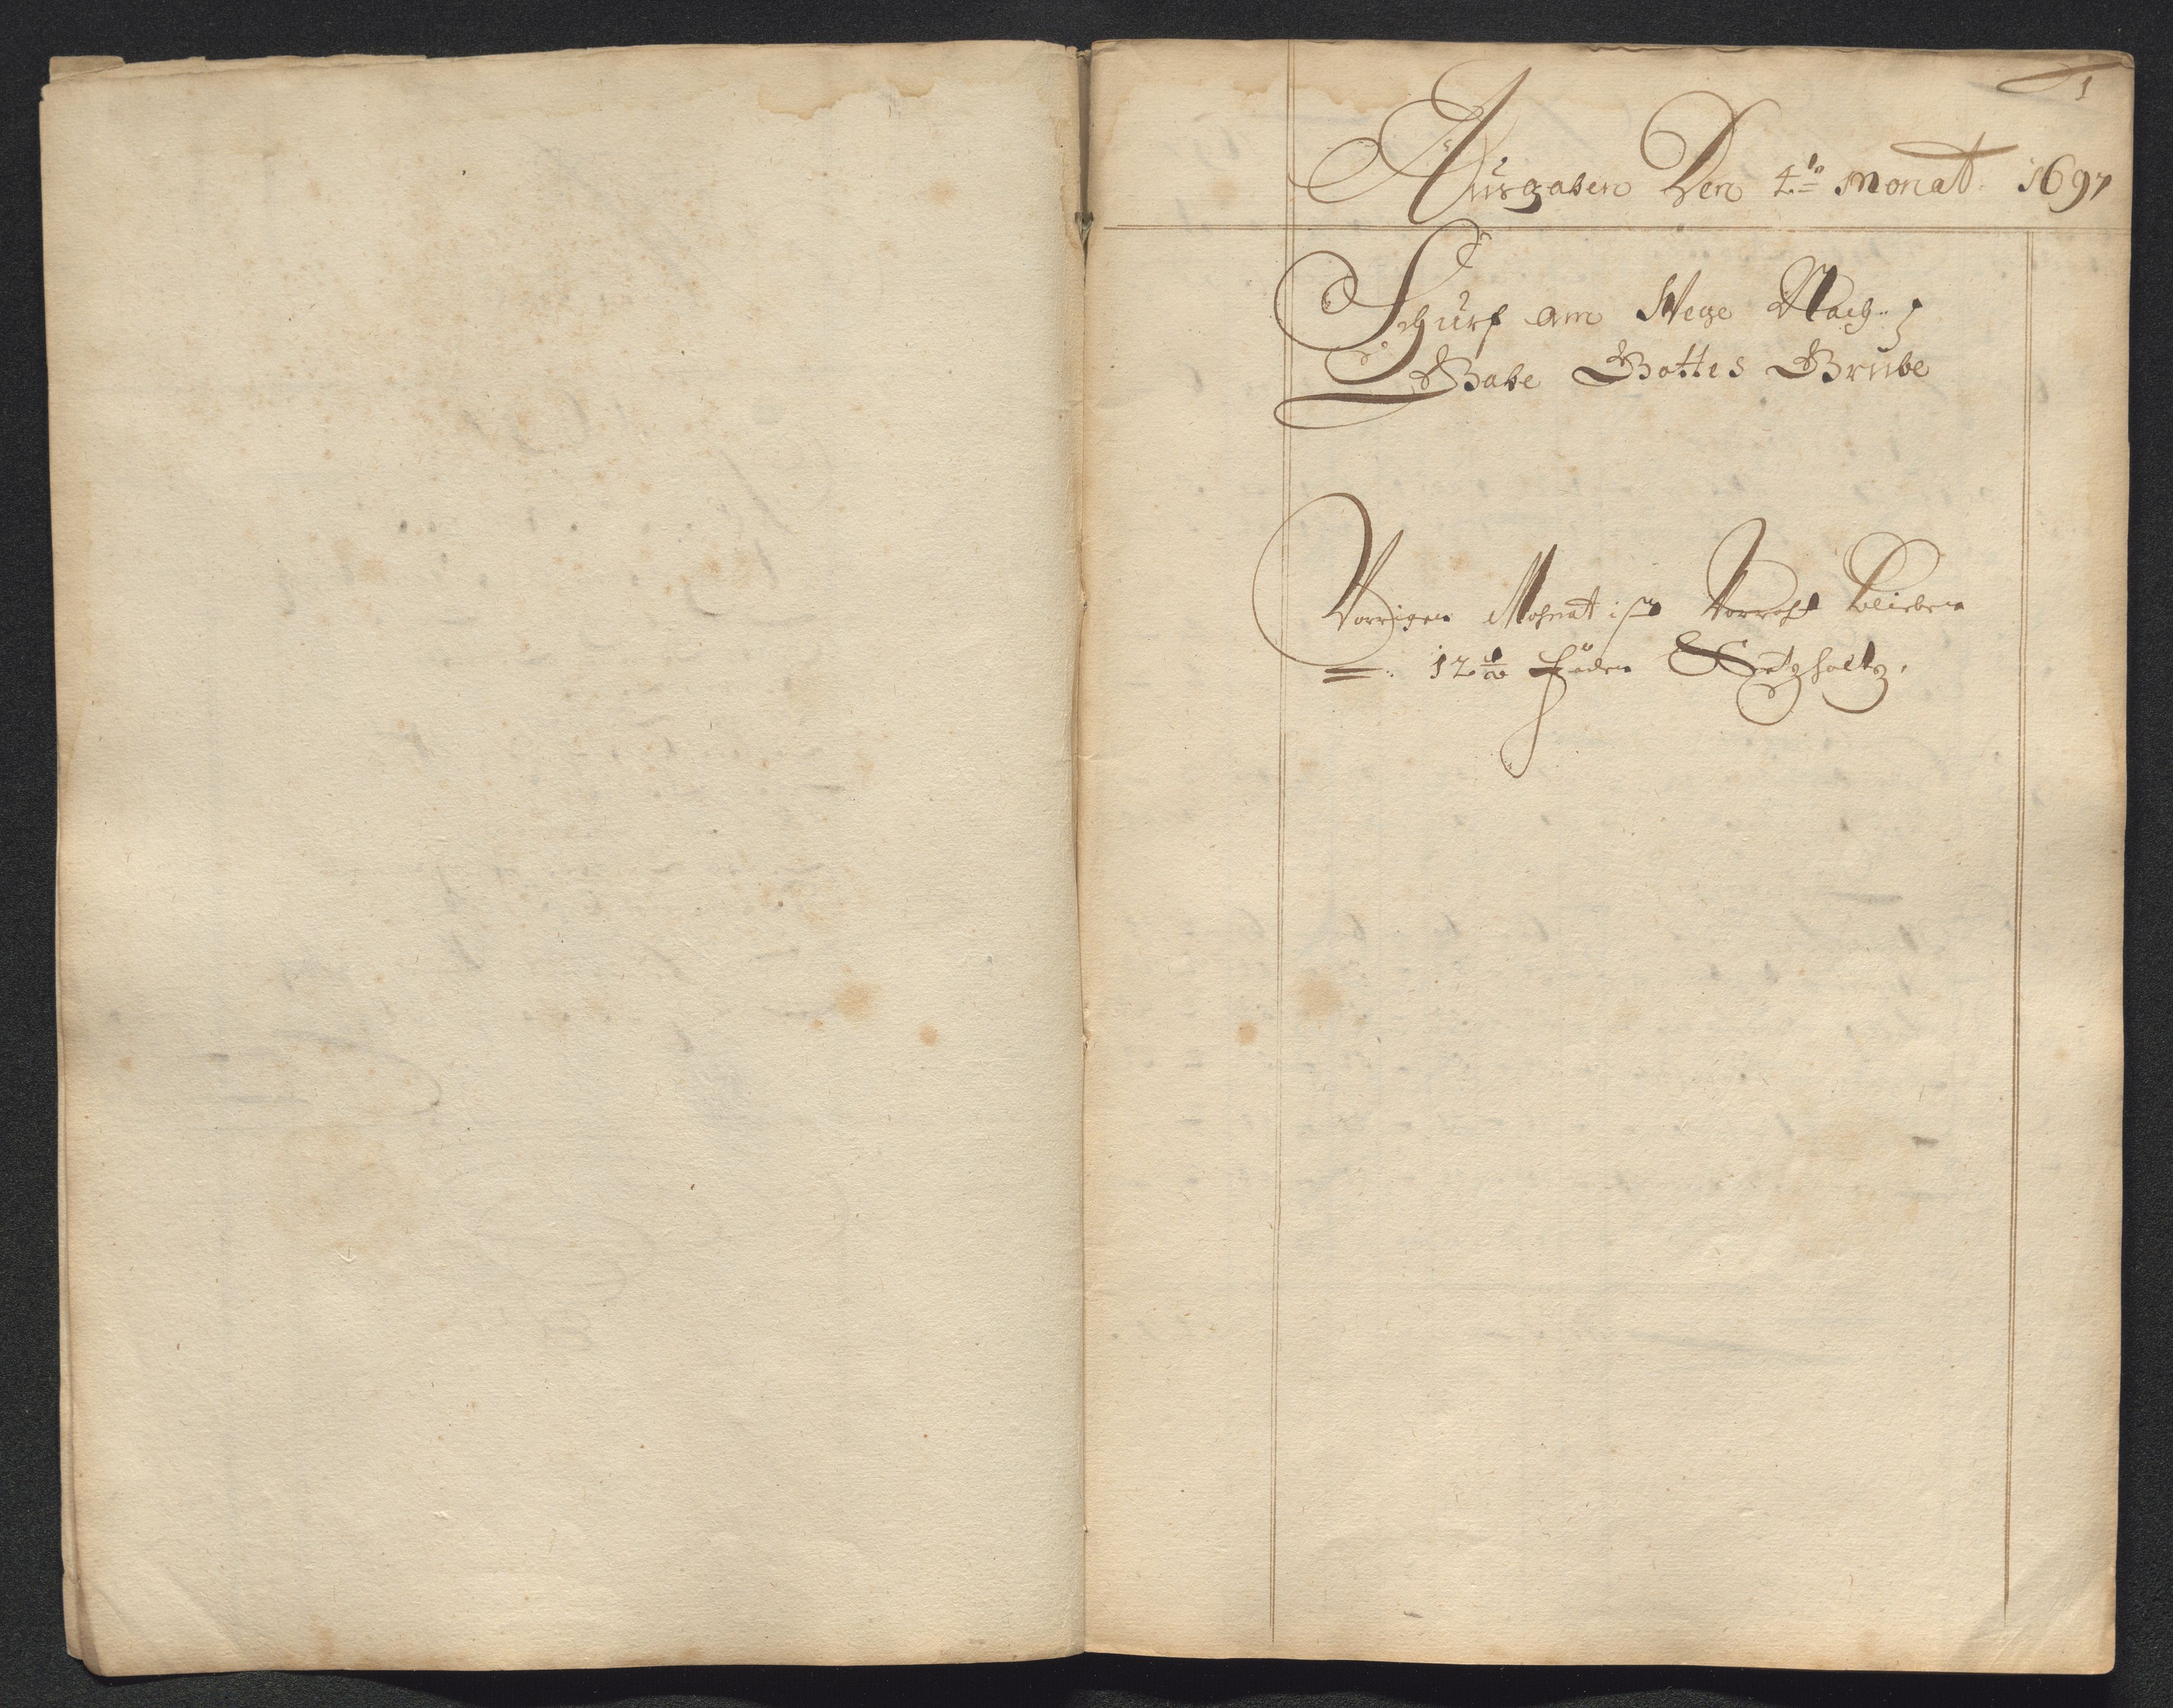 1
Ausgaben Den 4to Monat. 1697
Schurf am Wege Nach
Gabe Gottes Grube
Vorrigen Mohnat ist Vorraht blieben
12 1/2 Füder Setzholtz.